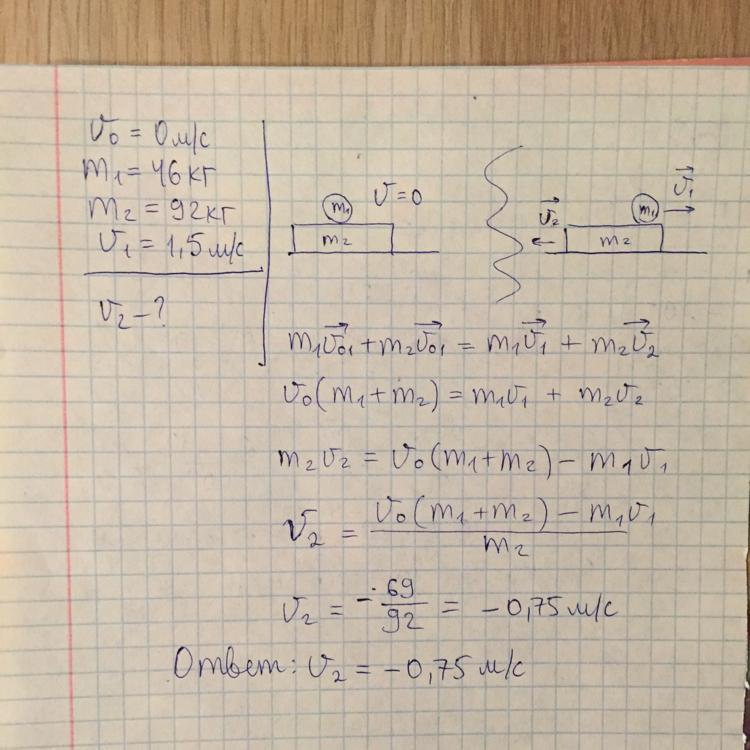 v₀ = 0 м/с
m₁ = 46 кг
m₂ = 92 кг
v₁ = 1,5 м/с
v₂ – ?
m₁ v = 0
m₂
v⃗₂ m₁ v⃗₁
m₂
m₁v⃗₀₁ + m₂v⃗₀₁ = m₁v⃗₁ + m₂v⃗₂
v₀(m₁ + m₂) = m₁v₁ + m₂v₂
m₂v₂ = v₀(m₁+m₂) – m₁v₁
v₂ = (v₀(m₁+m₂) – m₁v₁) / m₂
v₂ = – 69/92 = – 0,75 м/с
Ответ: v₂ = – 0,75 м/с